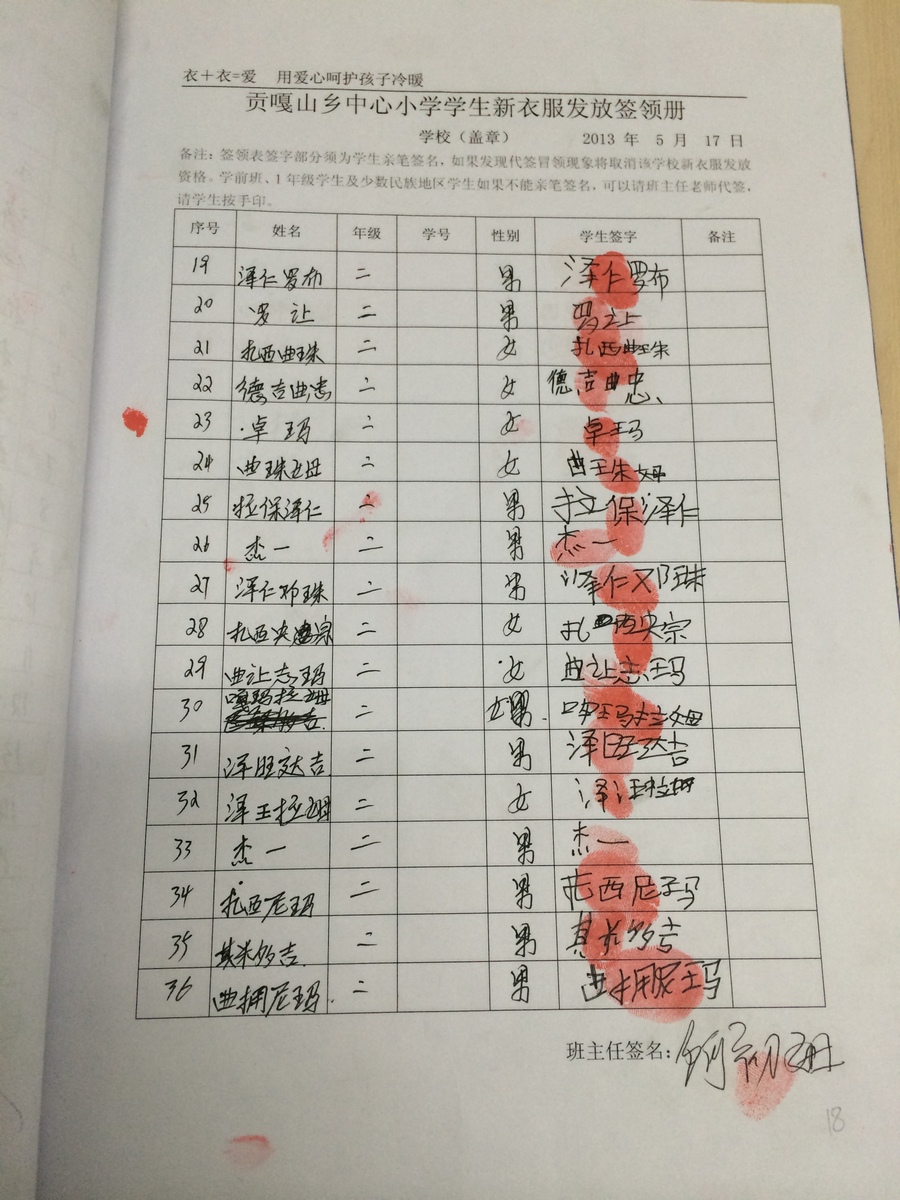 衣＋衣=爱 用爱心呵护孩子冷暖
贡嘎山乡中心小学学生新衣服发放签领册
学校（盖章） 2013 年 5 月 17 日
备注：签领表签字部分须为学生亲笔签名，如果发现代签冒领现象将取消该学校新衣服发放
资格。学前班、1 年级学生及少数民族地区学生如果不能亲笔签名，可以请班主任老师代签，
请学生按手印。
序号 姓名 年级 学号 性别 学生签字 备注
19 泽仁罗布 二 男 泽仁罗布
20 罗让 二 男 罗让
21 扎西曲珠 二 女 扎西曲珠
22 德吉曲忠 二 女 德吉曲忠
23 卓玛 二 女 卓玛
24 曲珠姆 二 女 曲珠姆
25 拉保泽仁 二 男 拉保泽仁
26 杰一 二 男 杰一
27 泽仁邓珠 二 男 泽仁邓珠
28 扎西央宗 二 女 扎西央宗
29 曲让志玛 二 女 曲让志玛
30 嘎玛拉姆 二 女 玛拉姆
31 泽旺达吉 二 男 泽旺达吉
32 泽王拉姆 二 女 泽汪拉姆
33 杰一 二 男 杰一
34 扎西尼玛 二 男 扎西尼玛
35 其米多吉 二 男 其米多吉
36 曲拥尼玛 二 男 曲拥尼玛
班主任签名：
18